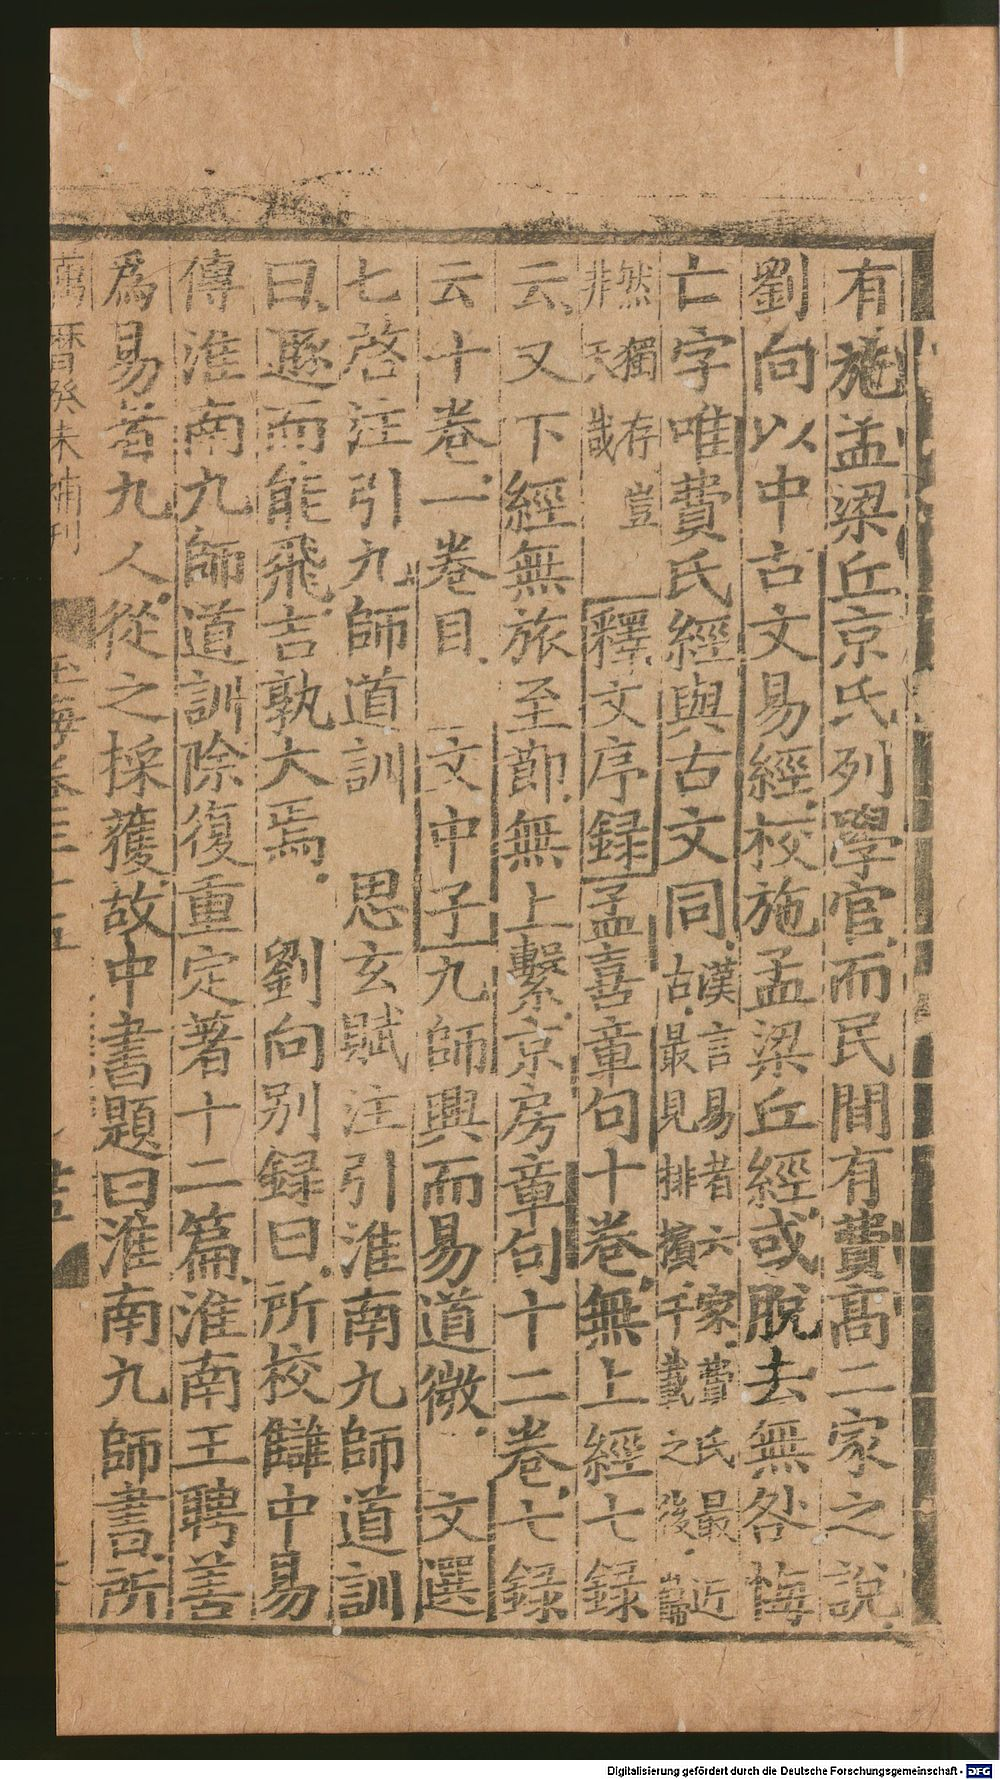 有施孟梁丘京氏列學官而民間有費髙二家之說
劉向以中古文易經校施孟梁丘經或脫去無咎悔
亡字唯費氏經與古文同漢言易者六家費氏最近
古最見排擯千載之後巋
然獨存豈
非天哉
釋文序録孟喜章句十卷無上經七録
云又下經無旅至節無上繫京房章句十二卷七録
云十卷一卷目 文中子九師興而易道微 文選
七啓注引九師道訓 思玄賦注引淮南九師道訓
曰遯而能飛吉孰大焉 劉向别録曰所校讎中易
傳淮南九師道訓除復重定著十二篇淮南王聘善
爲易者九人從之採獲故中書題曰淮南九師書所
萬曆癸未補刊
玉海卷三十五
Digitalisierung gefördert durch die Deutsche Forschungsgemeinschaft - DFG